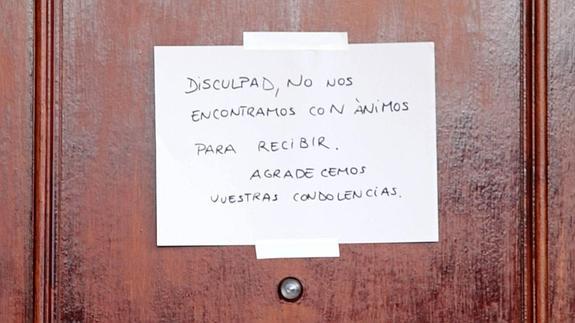 DISCULPAD, NO NOS
ENCONTRAMOS CON ÀNIMOS
PARA RECIBIR.
AGRADECEMOS
VUESTRAS CONDOLENCIAS.